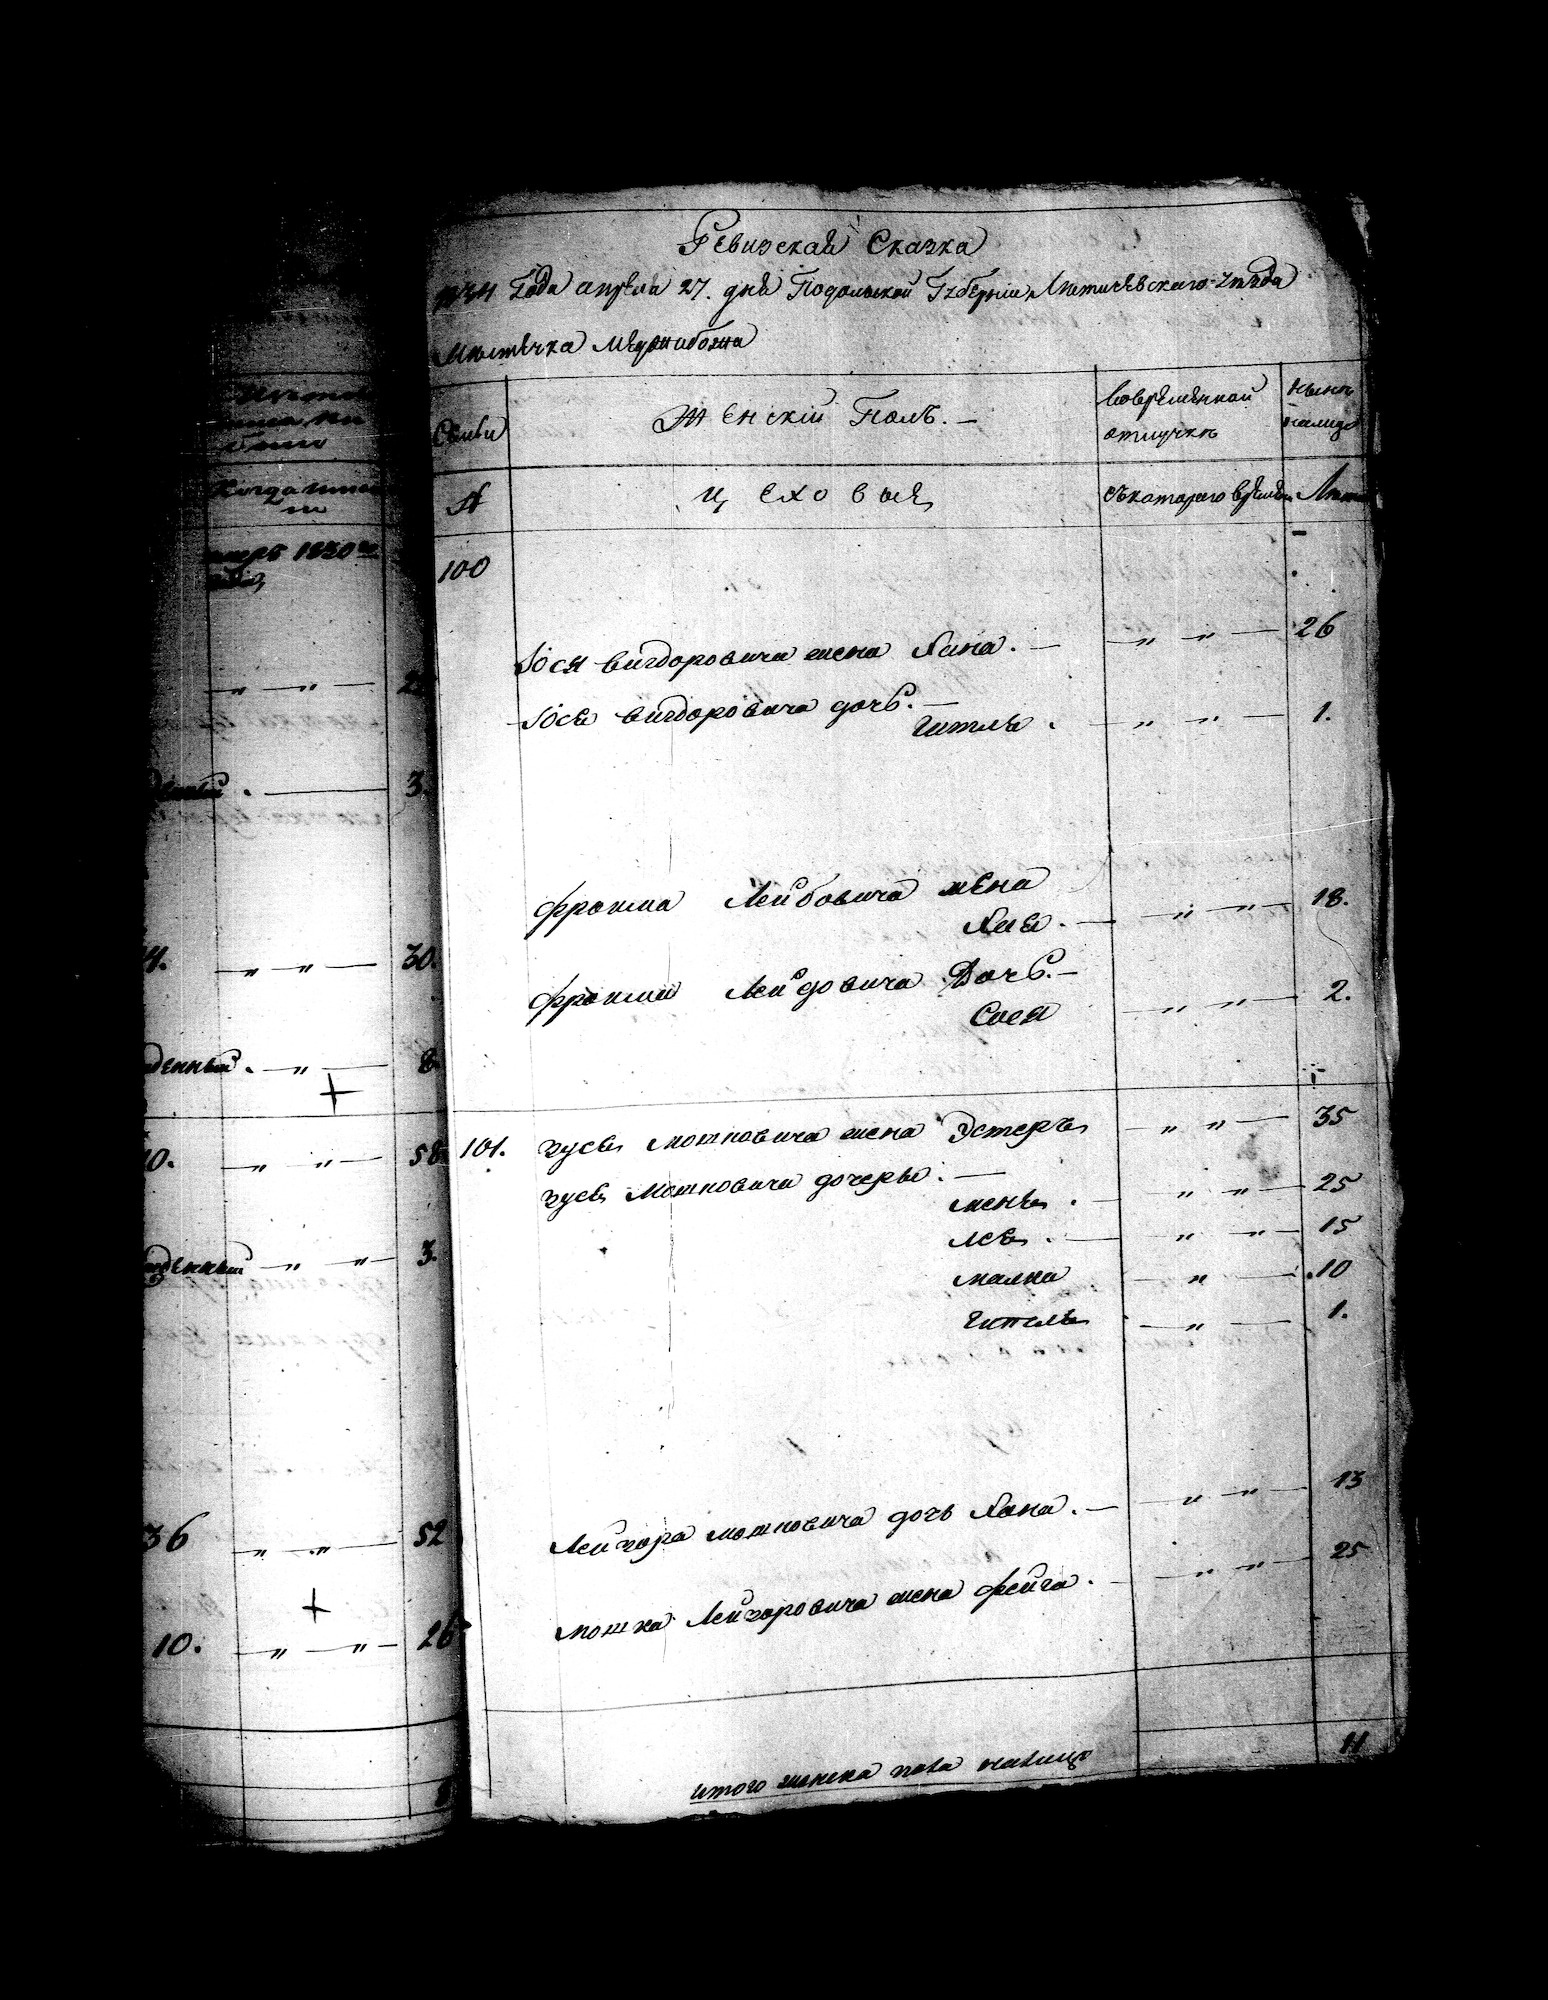 Ревизская Сказка
1834 Года апреля 27. дня Подольской Губернии Летичевскаго уезда
Местечка Меджибожа
Семьи
Женский Полъ. —
Вовременной отлучке
Ныне налицо
№
цеховые
съ котораго времени
Лета
100
Іося Вигдоровича жена Хана. — „ „ — 26
Іося Вигдоровича дочь. —
Гитля . — „ „ — 1.
Фроима Лейбовича жена
Хая. — „ „ — 18.
Фроима Лейбовича Дочь. —
Сося — „ „ — 2.
101. Зуся Мошковича жена Эстеръ — „ „ — 35
Зуся Мошковича дочеры. —
меня . — „ „ — 25
Лея . — „ „ — 15
малка — „ — 10
Гитля — „ — 1.
Лейзора мошковича дочь Хана. — „ „ — 13
мошка Лейзоровича жена фейга. — „ „ — 25
итого женска пола налицо 11
1830 го
года
„ — „ —
3.
— „ — „ — 30.
денный . — „ — 8
+
0. — „ „ — 58
денный — „ „ — 3.
36 — „ . „ — 52
+
10. — „ — „ — 26